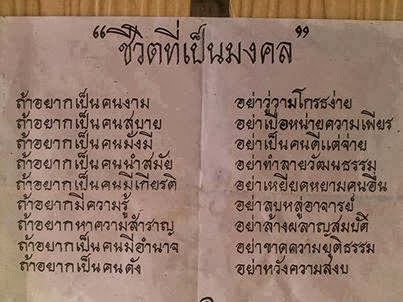 “ชีวิตที่เป็นมงคล”
ถ้าอยากเป็นคนงาม อย่าวู่วามโกรธง่าย
ถ้าอยากเป็นคนสบาย อย่าเบื่อหน่ายความเพียร
ถ้าอยากเป็นคนมั่งมี อย่าเป็นคนดีแต่จ่าย
ถ้าอยากเป็นคนนำสมัย อย่าทำลายวัฒนธรรม
ถ้าอยากเป็นคนมีเกียรติ อย่าเหยียดหยามคนอื่น
ถ้าอยากมีความรู้ อย่าลบหลู่อาจารย์
ถ้าอยากหาความสำราญ อย่าล้างผลาญสมบัติ
ถ้าอยากเป็นคนมีอำนาจ อย่าขาดความยุติธรรม
ถ้าอยากเป็นคนดัง อย่าหวังความสงบ